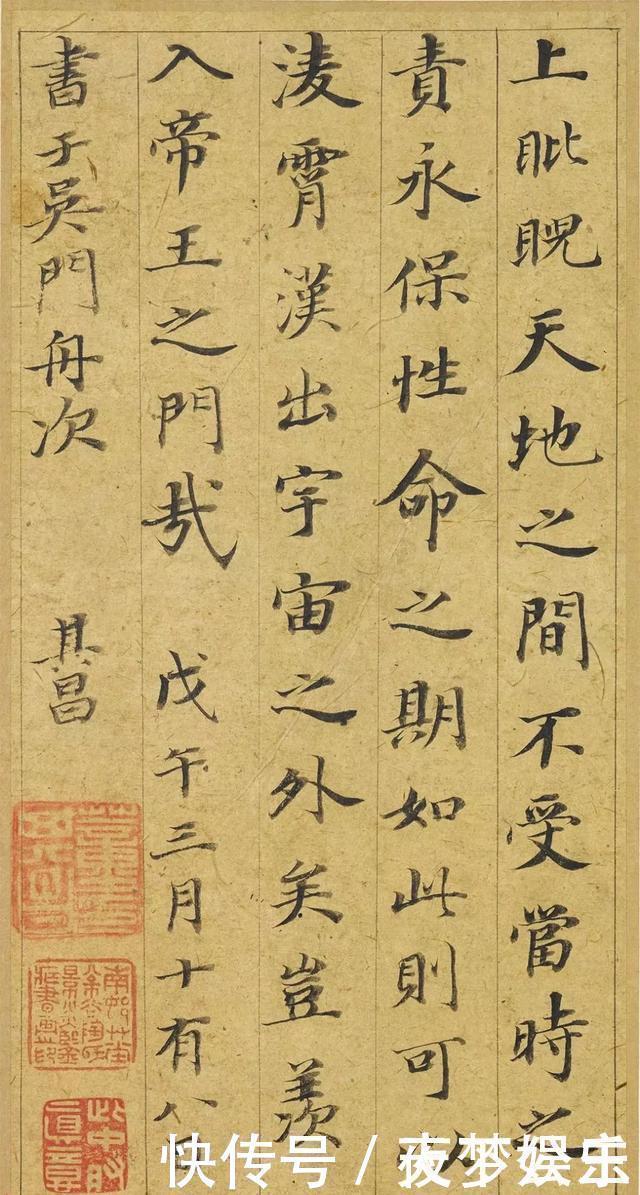 上睥睨天地之間不受當時之
責永保性命之期如此則可以
淩霄漢出宇宙之外矣豈羨
入帝王之門哉 戊午三月十有八日
書于吳門舟次 其昌
快传号/夜梦娱乐